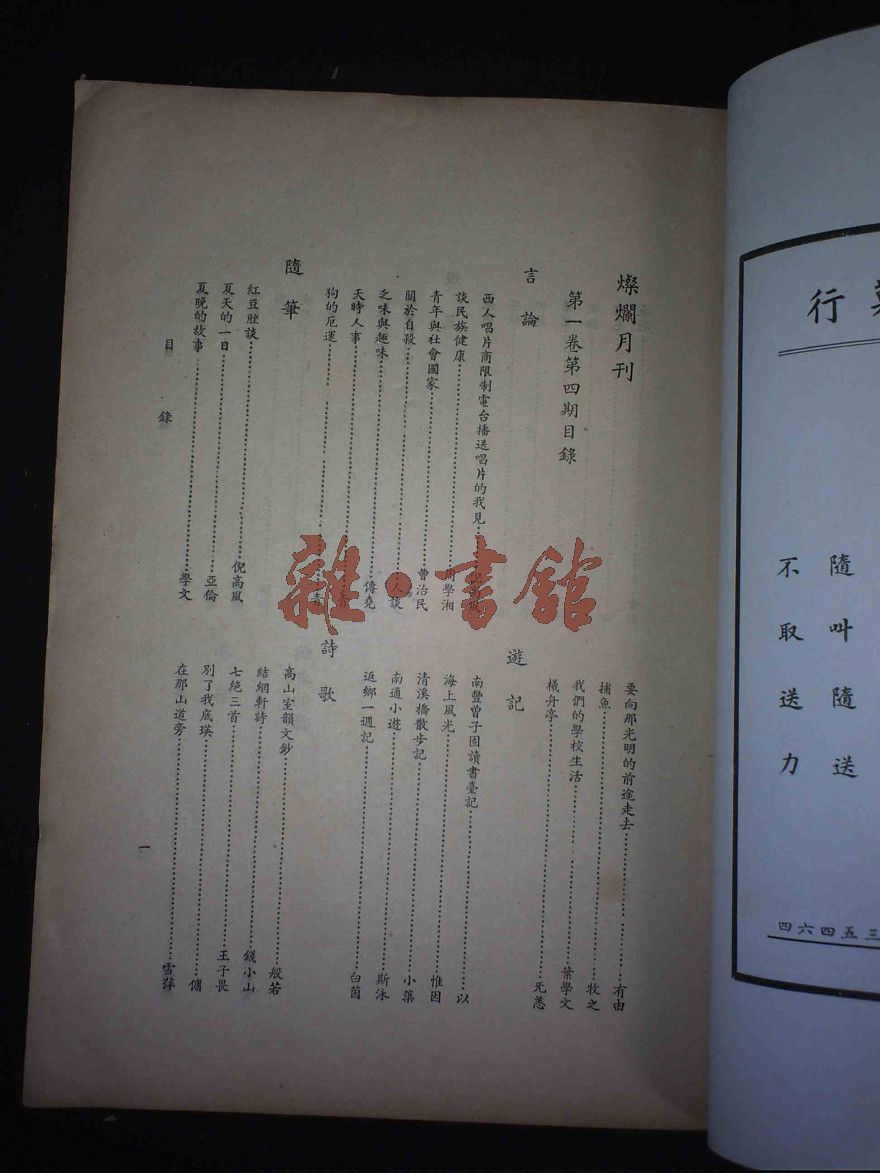 燦爛月刊
第一卷第四期目錄
言論
西人唱片商限制電台播送唱片的我見
談民族健康 周學湘
青年與社會國家 曹治民
關於自殺 人談
之味與趣味 傳堯
天時人事 青
狗的厄運 青
隨筆
紅豆脞談 倪高風
夏天的一日 亞倫
夏晚的故事 學文
要向那光明的前途走去 有由
捕魚 牧之
我們的學校生活 葉學文
檥舟亭 无恙
遊記
南豐曾子固讀書臺記 以
海上風光 惟因
清溪橋散步記 小蕖
南通小遊 斯泳
返鄉一週記 白茵
詩歌
高山室韻文鈔 般若
結網軒詩 錢小山
七絕三首 王子畏
別了我底瑛 傭
在那山道旁 雪萍
目錄
一
行
隨叫隨送
不取送力
三五四六四
雜·書館